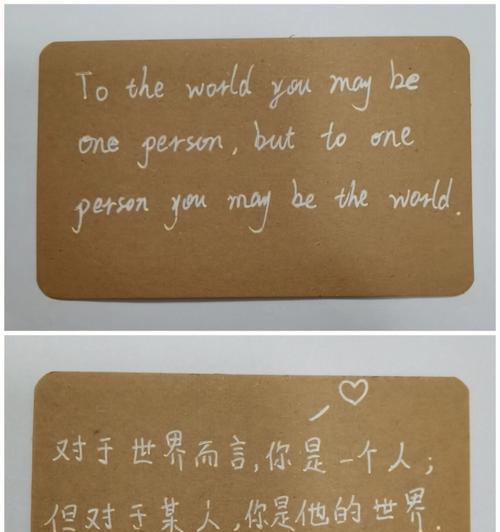 To the world you may be
one person, but to one
person you may be the world.
对于世界而言,你是一个人;
但对于某人,你是他的世界.